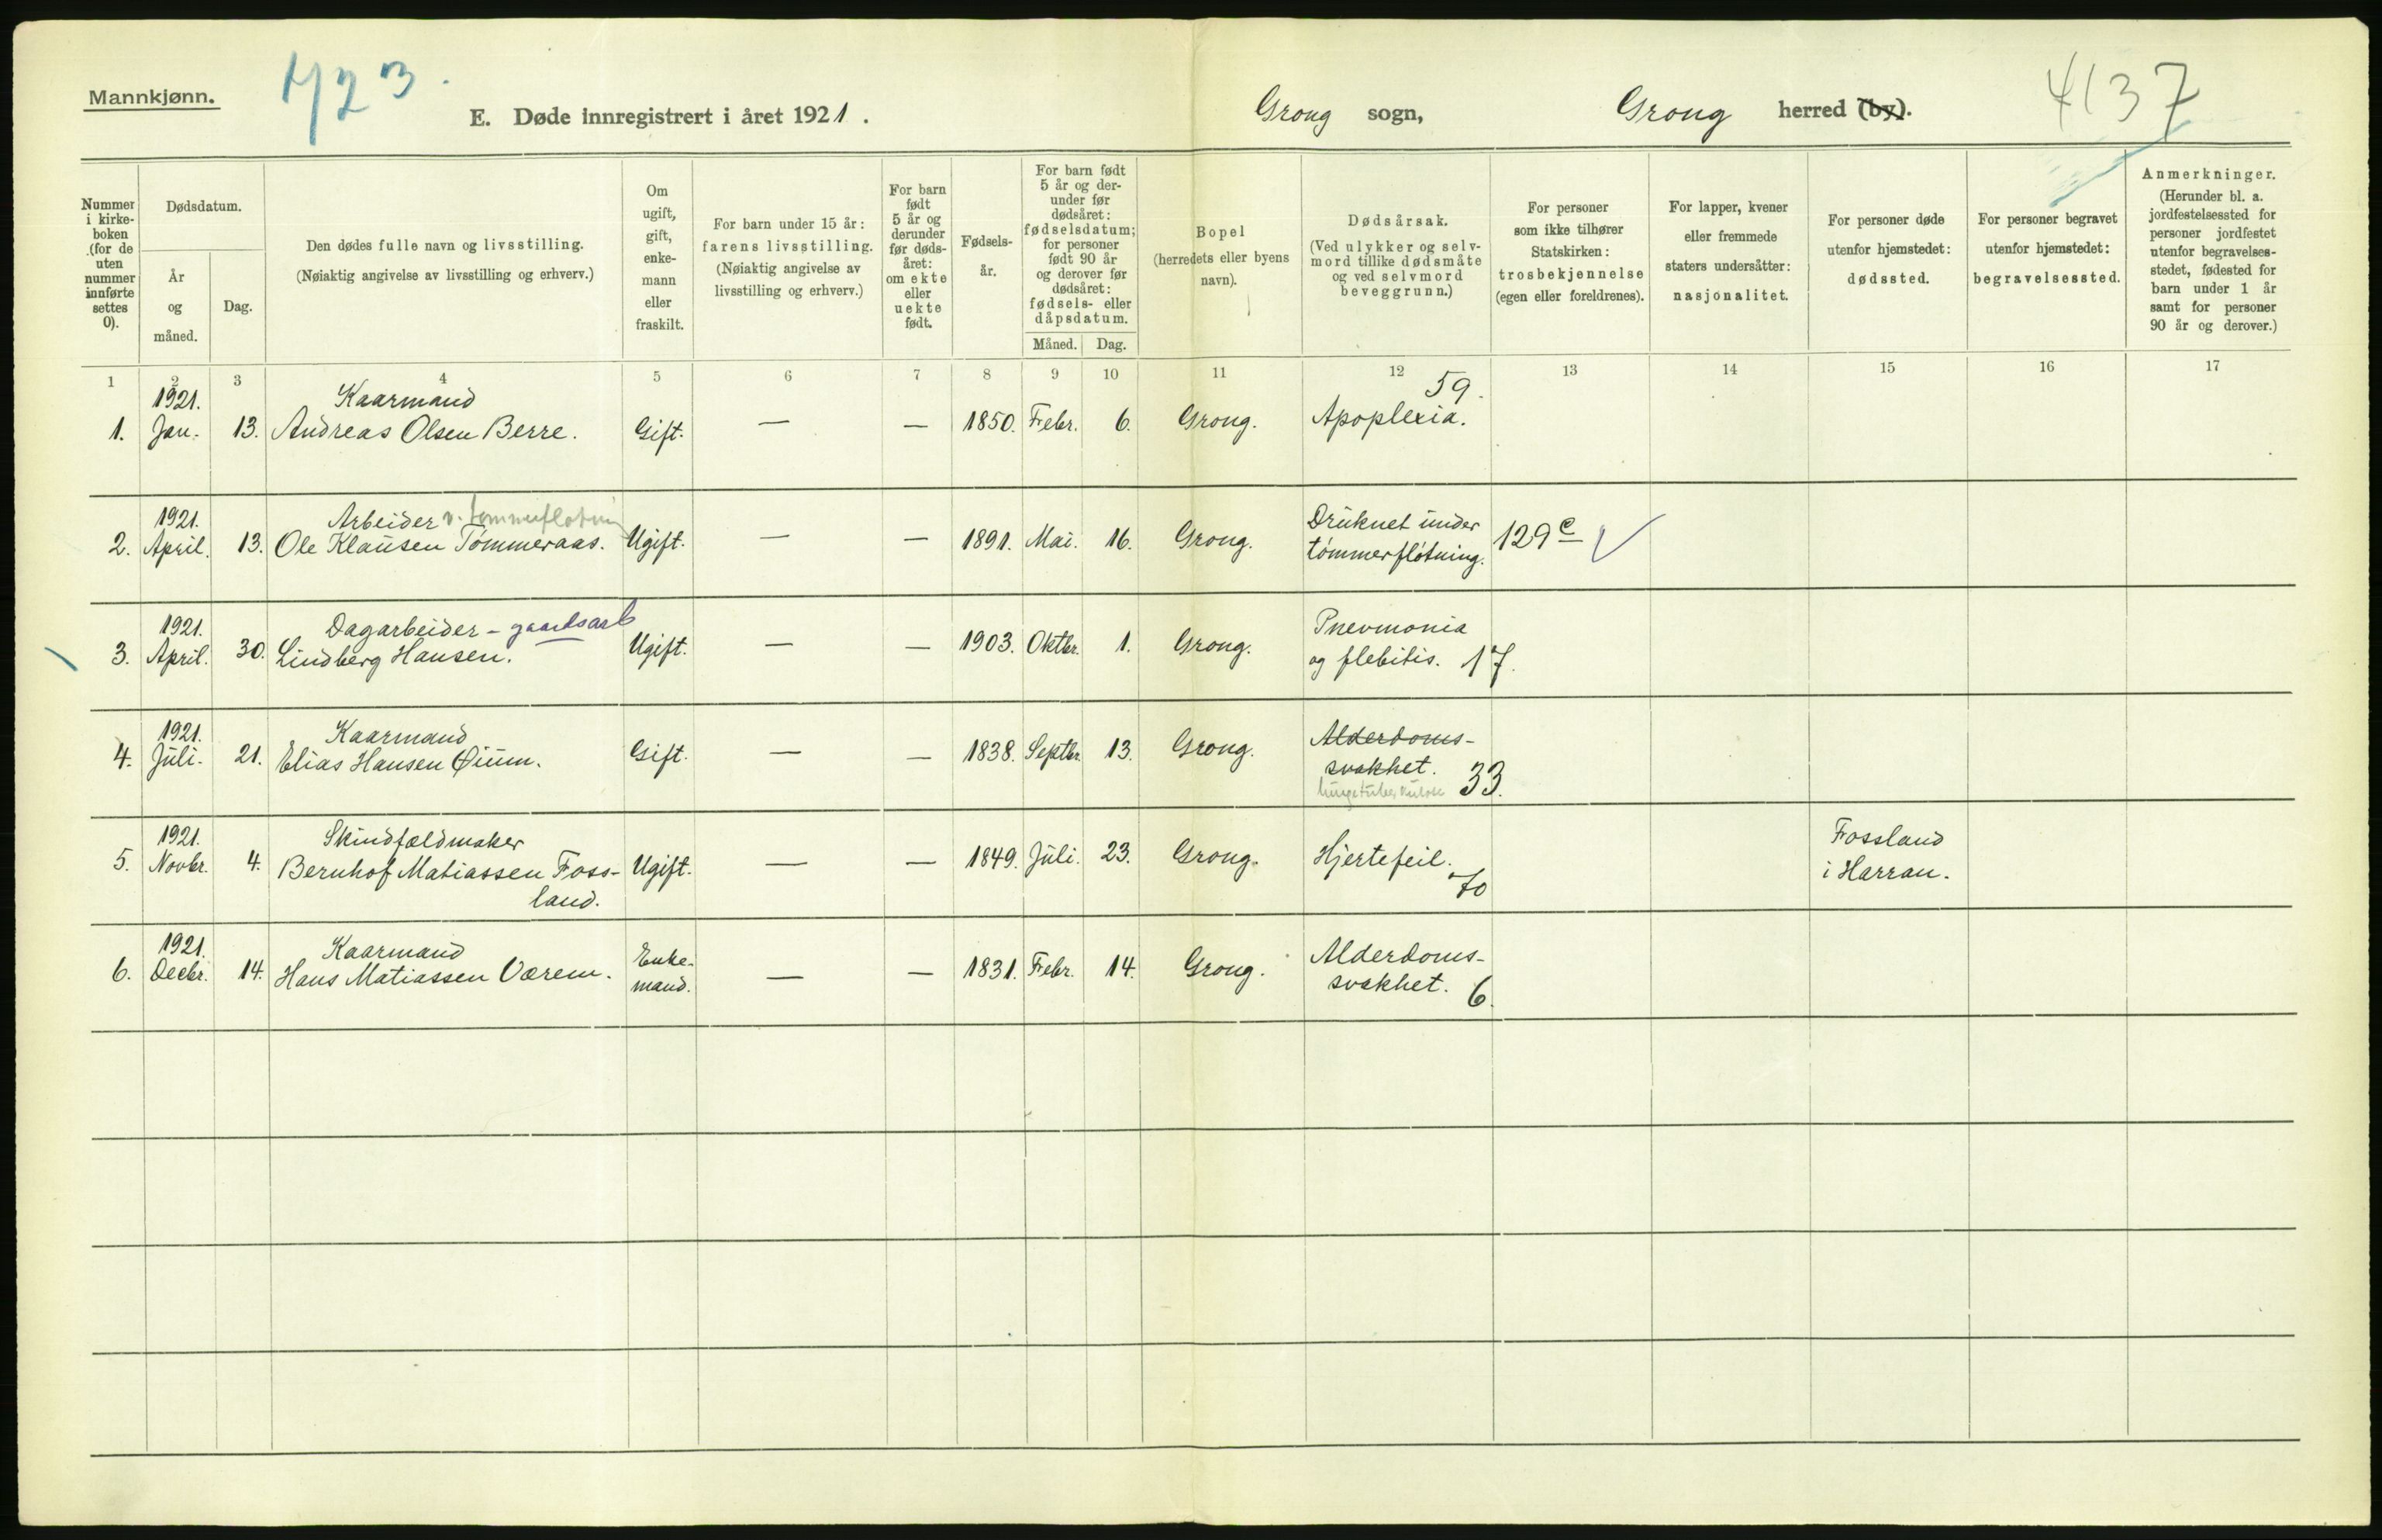 Mannkjønn.
723.
E. Døde innregistrert i året 1921.
Grong sogn,
Grong herred (by).
4137
Nummer
i kirke-
boken
(for de
uten
nummer
innførte
settes
0).
Dødsdatum.
År
og
måned.
Dag.
Den dødes fulle navn og livsstilling.
(Nøiaktig angivelse av livsstilling og erhverv.)
Om
ugift,
gift,
enke-
mann
eller
fraskilt.
For barn under 15 år:
farens livsstilling.
(Nøiaktig angivelse av
livsstilling og erhverv.)
For barn
født
5 år og
derunder
før døds-
året:
om ekte
eller
uekte
født.
Fødsels-
år.
For barn født
5 år og der-
under før
dødsåret:
fødselsdatum;
for personer
født 90 år
og derover før
dødsåret:
fødsels- eller
dåpsdatum.
Måned. Dag.
Bopel
(herredets eller byens
navn).
Dødsårsak.
(Ved ulykker og selv-
mord tillike dødsmåte
og ved selvmord
beveggrunn.)
For personer
som ikke tilhører
Statskirken:
trosbekjennelse
(egen eller foreldrenes).
For lapper, kvener
eller fremmede
staters undersåtter:
nasjonalitet.
For personer døde
utenfor hjemstedet:
dødssted.
For personer begravet
utenfor hjemstedet:
begravelsessted.
Anmerkninger.
(Herunder bl. a.
jordfestelsessted for
personer jordfestet
utenfor begravelses-
stedet, fødested for
barn under 1 år
samt for personer
90 år og derover.)
1 2 3 4 5 6 7 8 9 10 11 12 13 14 15 16 17
1921. Kaarmand 59.
1. Jan. 13. Andreas Olsen Berre. Gift. — — 1850. Febr. 6. Grong. Apoplexia.
1921. Arbeider v. tømmerfløtning Druknet under
2. April. 13. Ole Klausen Tømmeraas. Ugift. — — 1891. Mai. 16. Grong. tømmerfløtning. 129 c
1921. Dagarbeider - gaardsarb Pnevmonia
3. April. 30. Lindberg Hansen. Ugift. — — 1903. Oktbr. 1. Grong. og flebitis. 17.
1921. Kaarmand Alderdoms-
4. Juli. 21. Elias Hansen Øium. Gift. — — 1838. Septbr. 13. Grong. svakhet. 33.
lungetuberkulose
1921. Skindfældmaker Fossland
5. Novbr. 4. Bernhof Matiassen Foss- Ugift. — — 1849. Juli. 23. Grong. Hjertefeil. 70 i Harran.
land.
1921. Kaarmand Enke- Alderdoms-
6. Decbr. 14. Hans Matiassen Værem. mand. — — 1831. Febr. 14. Grong. svakhet. 6.